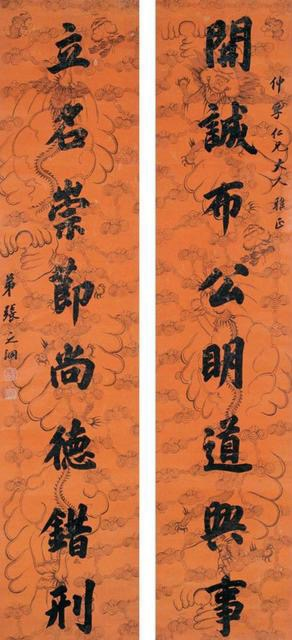 開誠布公明道興事
仲孚仁兄大人雅正
立名崇節尚德錯刑
弟張之洞